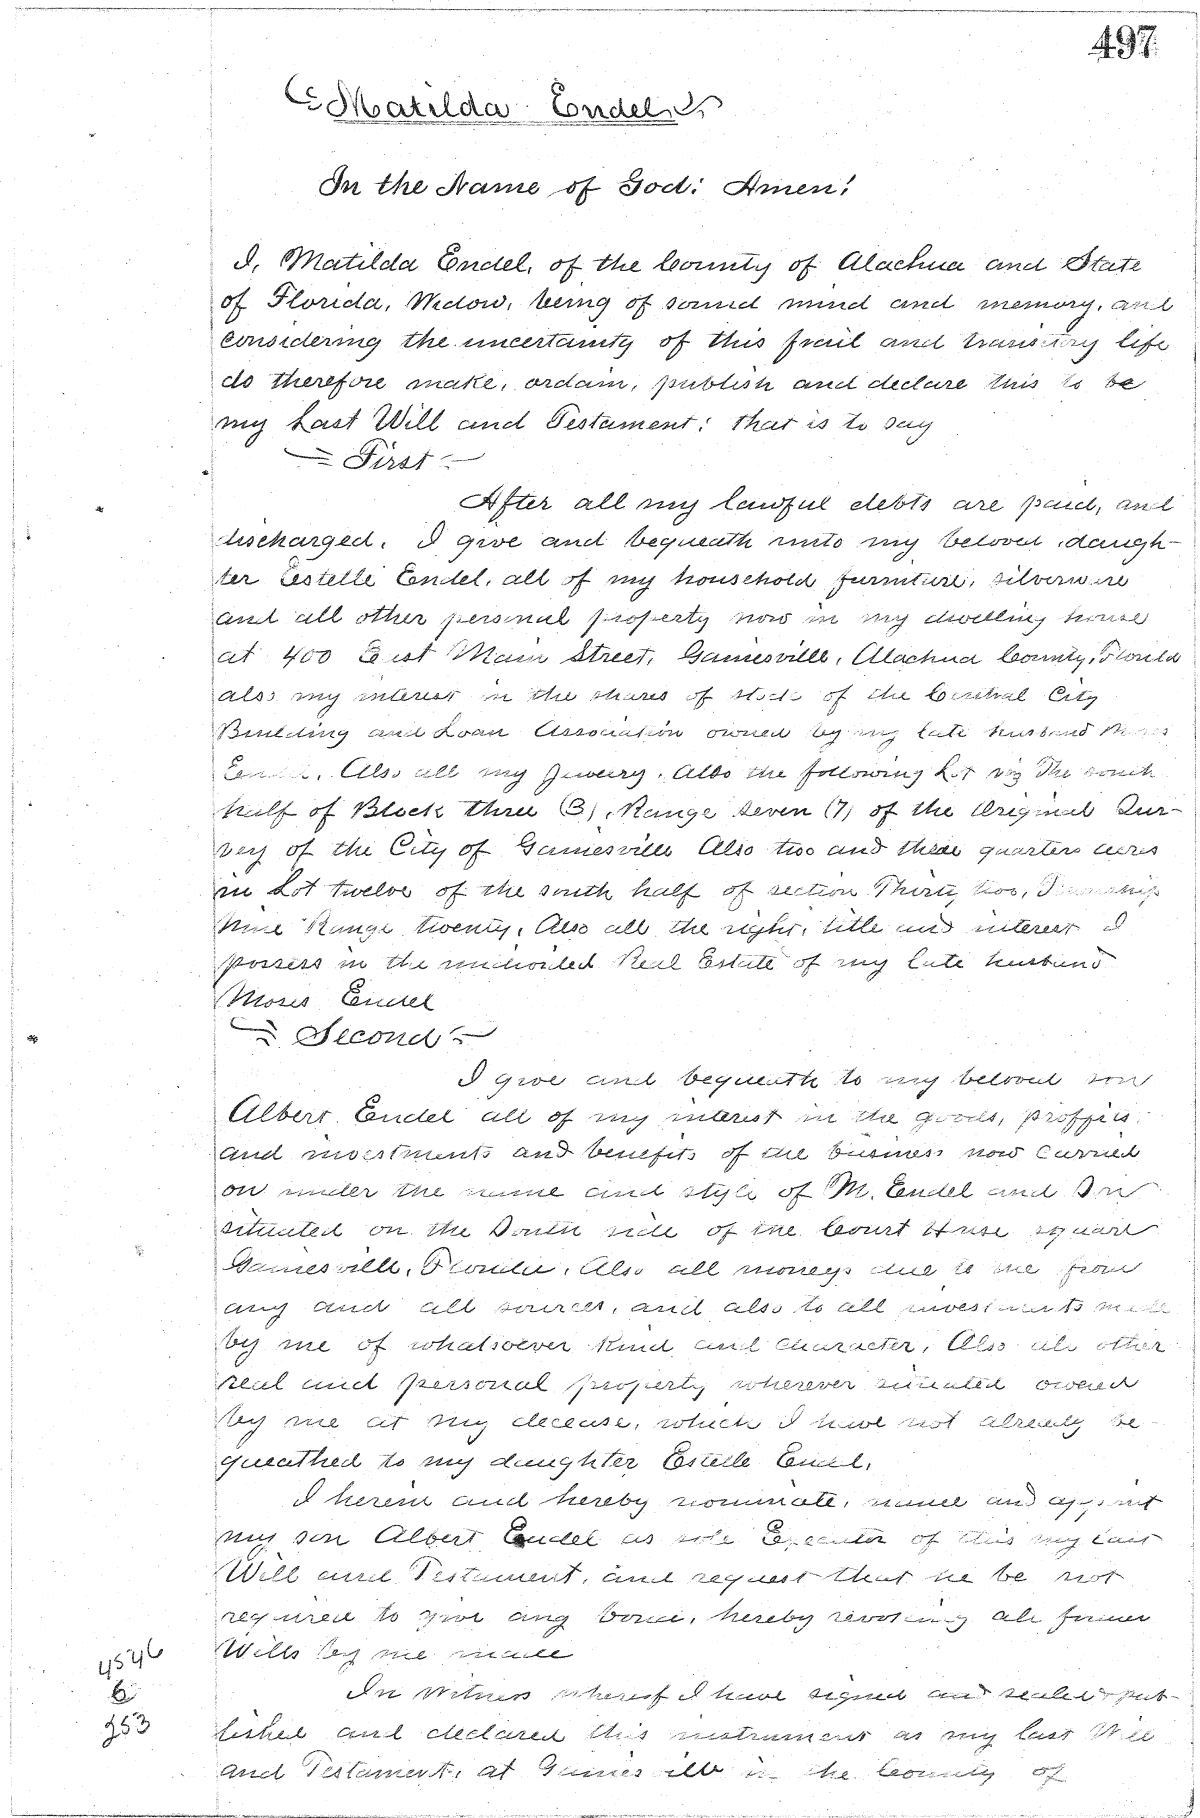 497
Matilda Endel
In the Name of God: Amen!
I, Matilda Endel, of the County of Alachua and State
of Florida, Widow, being of sound mind and memory, and
considering the uncertainty of this frail and transitory life
do therefore make, ordain, publish and declare this to be
my Last Will and Testament: that is to say
First
After all my lawful debts are paid, and
discharged, I give and bequeath unto my beloved daugh-
ter Estelle Endel, all of my household furniture, silverware
and all other personal property now in my dwelling house
at 400 East Main Street, Gainesville, Alachua County, Florida
also my interest in the shares of stock of the Central City
Building and Loan Association owned by my late husband Moses
Endel. Also all my Jewelry. Also the following Lot viz The south
half of Block three (3), Range seven (7) of the Original Sur-
vey of the City of Gainesville Also two and three quarters acres
in Lot twelve of the south half of section Thirty two, Township
Nine Range twenty, Also all the right, title and interest I
possess in the undivided Real Estate of my late husband
Moses Endel
Second
I give and bequeath to my beloved son
Albert Endel all of my interest in the goods, proffits
and investments and benefits of the business now carried
on under the name and style of M. Endel and Son
situated on the South side of the Court House square
Gainesville, Florida. Also all moneys due to me from
any and all sources, and also to all investments made
by me of whatsoever kind and character, Also all other
real and personal property wherever situated owned
by me at my decease, which I have not already be-
queathed to my daughter Estelle Endel.
I herein and hereby nominate, name and appoint
my son Albert Endel as sole Executor of this my Last
Will and Testament, and request that he be not
required to give any bond, hereby revoking all former
Wills by me made
In Witness whereof I have signed and sealed & pub-
lished and declared this instrument as my last Will
and Testament, at Gainesville in the County of
4546
6
953